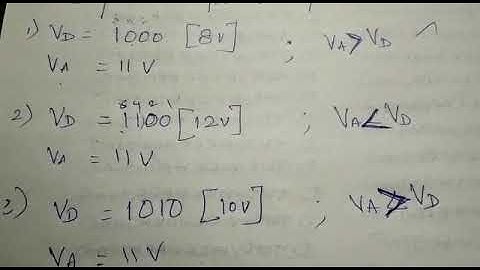 8 4 2 1
1) VD = 1000 [8v] ; VA > VD
VA = 11 V
8 4 2 1
2) VD = 1100 [12v] ; VA < VD
VA = 11 V
3) VD = 1010 [10v] ; VA > VD
VA = 11 V